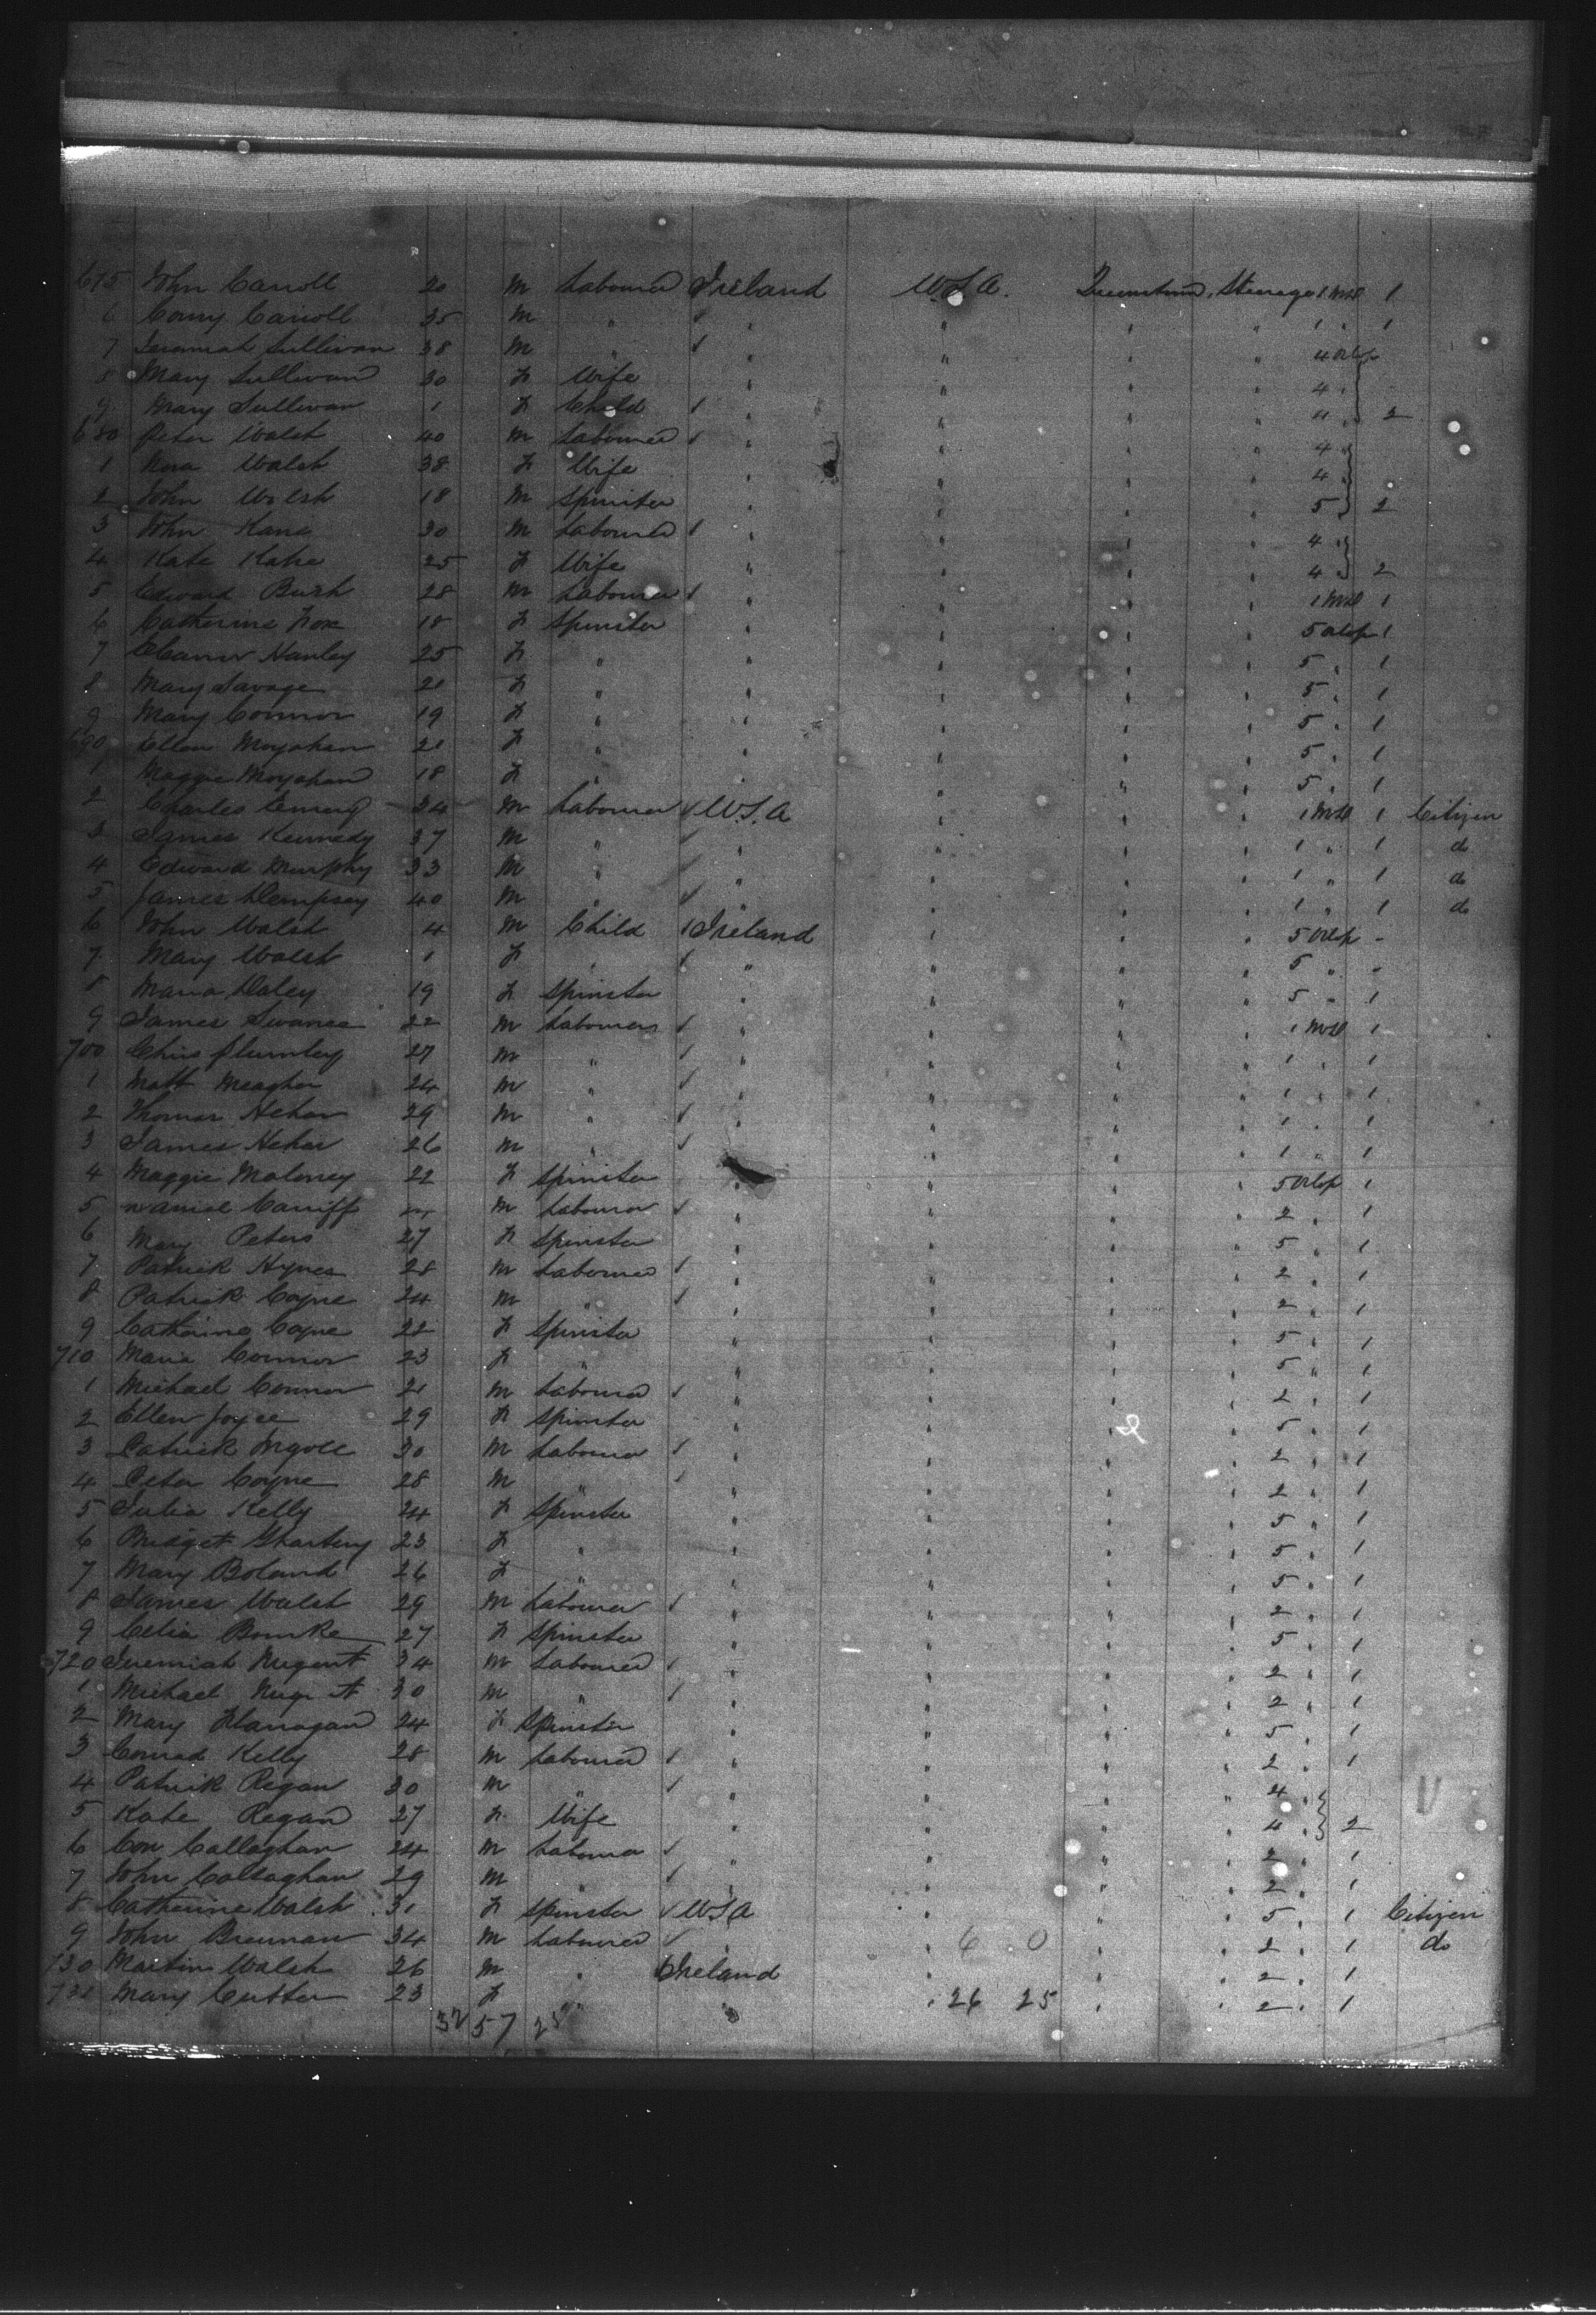 675 John Carroll 20 M Labourer Ireland U.S.A. Queenstown Steerage 1 Mid 1
6 Corny Carroll 35 M " " " " " 1 " 1
7 Jeremiah Sullivan 38 M " " " " " 4 Orlop
8 Mary Sullivan 30 F Wife " " " " 4 "
9 Mary Sullivan 1 F Child " " " " 4 " 2
680 Peter Walsh 40 M Labourer " " " " 4 "
1 Nora Walsh 38 F Wife " " " " 4 "
2 John Walsh 18 M Spinster " " " " 5 2
3 John Kane 30 M Labourer " " " " 4 "
4 Kate Kane 25 F Wife " " " " 4 " 2
5 Edward Bush 28 M Labourer " " " " 1 Mid 1
6 Catherine Fox 18 F Spinster " " " " 5 Orlop 1
7 Eleanor Hanley 25 F " " " " " 5 " 1
8 Mary Savage 21 F " " " " " 5 " 1
9 Mary Connor 19 F " " " " " 5 " 1
690 Ellen Moyahan 21 F " " " " " 5 " 1
1 Maggie Moyahan 18 F " " " " " 5 " 1
2 Charles Emery 34 M Labourer U.S.A " " " 1 Mid 1 Citizen
3 James Kennedy 37 M " " " " " 1 " 1 do
4 Edward Murphy 33 M " " " " " 1 " 1 do
5 James Dempsey 40 M " " " " " 1 " 1 do
6 John Walsh 4 M Child Ireland " " " 5 Orlop -
7 Mary Walsh 1 F " " " " " 5 " -
8 Maria Daley 19 F Spinster " " " " 5 " 1
9 James Swanee 22 M Labourers " " " " 1 Mid 1
700 Chris Plumley 27 M " " " " " 1 " 1
1 Matt Meagher 24 M " " " " " 1 " 1
2 Thomas Hehar 29 M " " " " " 1 " 1
3 James Hehar 26 M " " " " " 1 " 1
4 Maggie Moloney 22 F Spinster " " " " 5 Orlop 1
5 Caniff M Labourer " " " " 2 " 1
6 Mary Peters 27 F Spinster " " " " 5 " 1
7 Patrick Hynes 28 M Labourer " " " " 2 " 1
8 Patrick Coyne 24 M " " " " " 2 " 1
9 Catherine Coyne 22 F Spinster " " " " 5 " 1
710 Maria Connor 23 F " " " " " 5 " 1
1 Michael Connor 21 M Labourer " " " " 2 " 1
2 Ellen Joyce 29 F Spinster " " " " 5 " 1
3 Patrick Ngoll 30 M Labourer " " " " 2 " 1
4 Peter Coyne 28 M " " " " " 2 " 1
5 Julia Kelly 24 F Spinster " " " " 5 " 1
6 Bridget Gharteny 23 F " " " " " 5 " 1
7 Mary Boland 26 F " " " " " 5 " 1
8 James Walsh 29 M Labourer " " " " 2 " 1
9 Celia Bourke 27 F Spinster " " " " 5 " 1
720 Jeremiah Nugent 34 M Labourer " " " " 2 " 1
1 Michael Nugent 30 M " " " " " 2 " 1
2 Mary Flanagan 24 F Spinster " " " " 5 " 1
3 Conrad Kelly 28 M Labourer " " " " 2 " 1
4 Patrik Regan 30 M " " " " " 4 "
5 Kate Regan 27 F Wife " " " " 4 " 2
6 Con Callaghan 24 M Labourer " " " " 2 " 1
7 John Callaghan 29 M " " " " " 2 " 1
8 Catherine Walsh 31 F Spinster USA " " " 5 " 1 Citizen
9 John Brennan 34 M Labourer " 6 0 " " 2 " 1 do
730 Martin Walsh 26 M " Ireland " " " 2 " 1
731 Mary Cutter 23 F " " " 26 25 " " 2 " 1
32 57 25